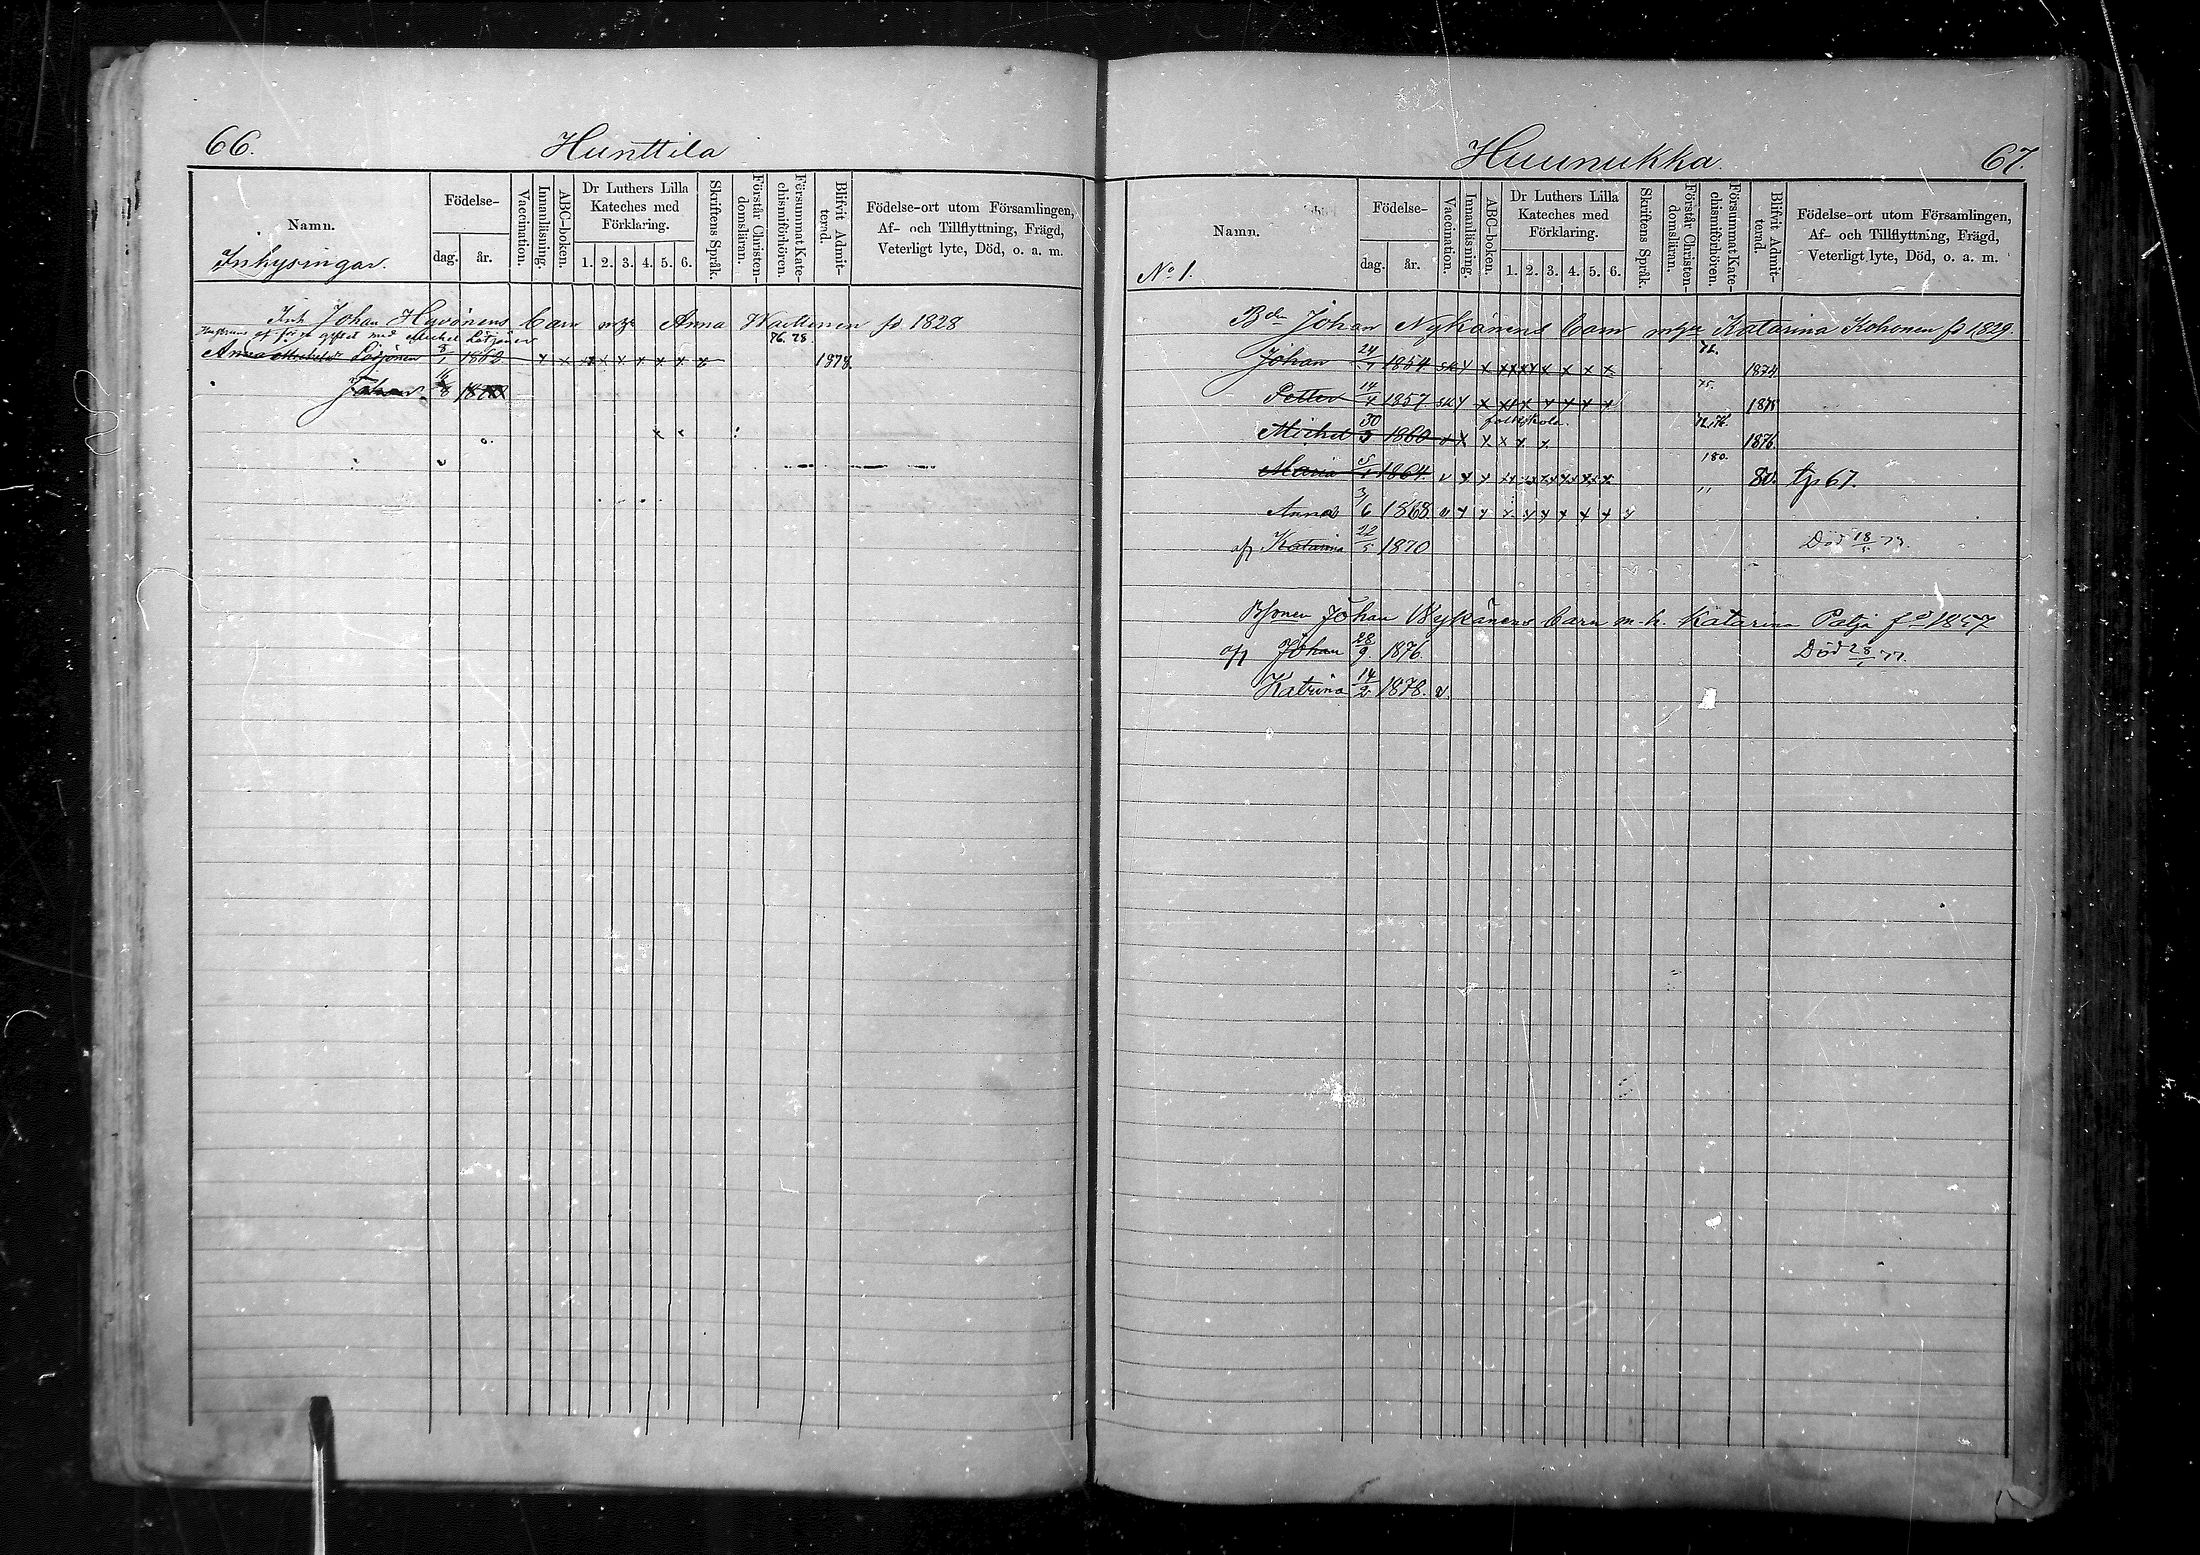 66.
Hunttila
Namn.
Födelse-
dag.
år.
Vaccination.
Innanläsning.
ABC-boken.
Dr Luthers Lilla
Kateches med
Förklaring.
1. 2. 3. 4. 5. 6.
Skriftens Språk.
Förstår Christen-
domsläran.
Försummat Kate-
chismiförhören.
Blifvit Admit-
terad.
Födelse-ort utom Församlingen,
Af- och Tillflyttning, Frägd,
Veterligt lyte, Död, o. a. m.
Inhysingar.
Inh Johan Hyvönens barn Anna fd 1828
gifvet med Michel Lötjönen 76. 78.
Anna Lötjönen 8/1 1862 x x x x x x x x 1878.
Johan 16/8
Huunukka.
67.
Namn.
Födelse-
dag.
år.
Vaccination.
Innanläsning.
ABC-boken.
Dr Luthers Lilla
Kateches med
Förklaring.
1. 2. 3. 4. 5. 6.
Skriftens Språk.
Förstår Christen-
domsläran.
Försummat Kate-
chismiförhören.
Blifvit Admit-
terad.
Födelse-ort utom Församlingen,
Af- och Tillflyttning, Frägd,
Veterligt lyte, Död, o. a. m.
No 1.
Bdn Johan Nykänens barn Katarina Kohonen fd 1829.
Johan 24/1 1854 x x x x x x x 72. 1874
Petter 14/4 1857 x x x x x x x 75. 1875
folkskola.
Michel 30/5 1860 x x x x x x 1876.
Maria 5/1 1864. v x x x x x x x x 180. 80. tp 67.
Anna 3/6 1868 v x x x x x x x x x
af. Katarina 22/5 1870 Död 18/5 77.
Bsonen Johan Nykänens barn m. h. Katarina Patja fd 1857
af Johan 28/9. 1876. Död 28/1 77.
Katrina 14/2. 1878. v.